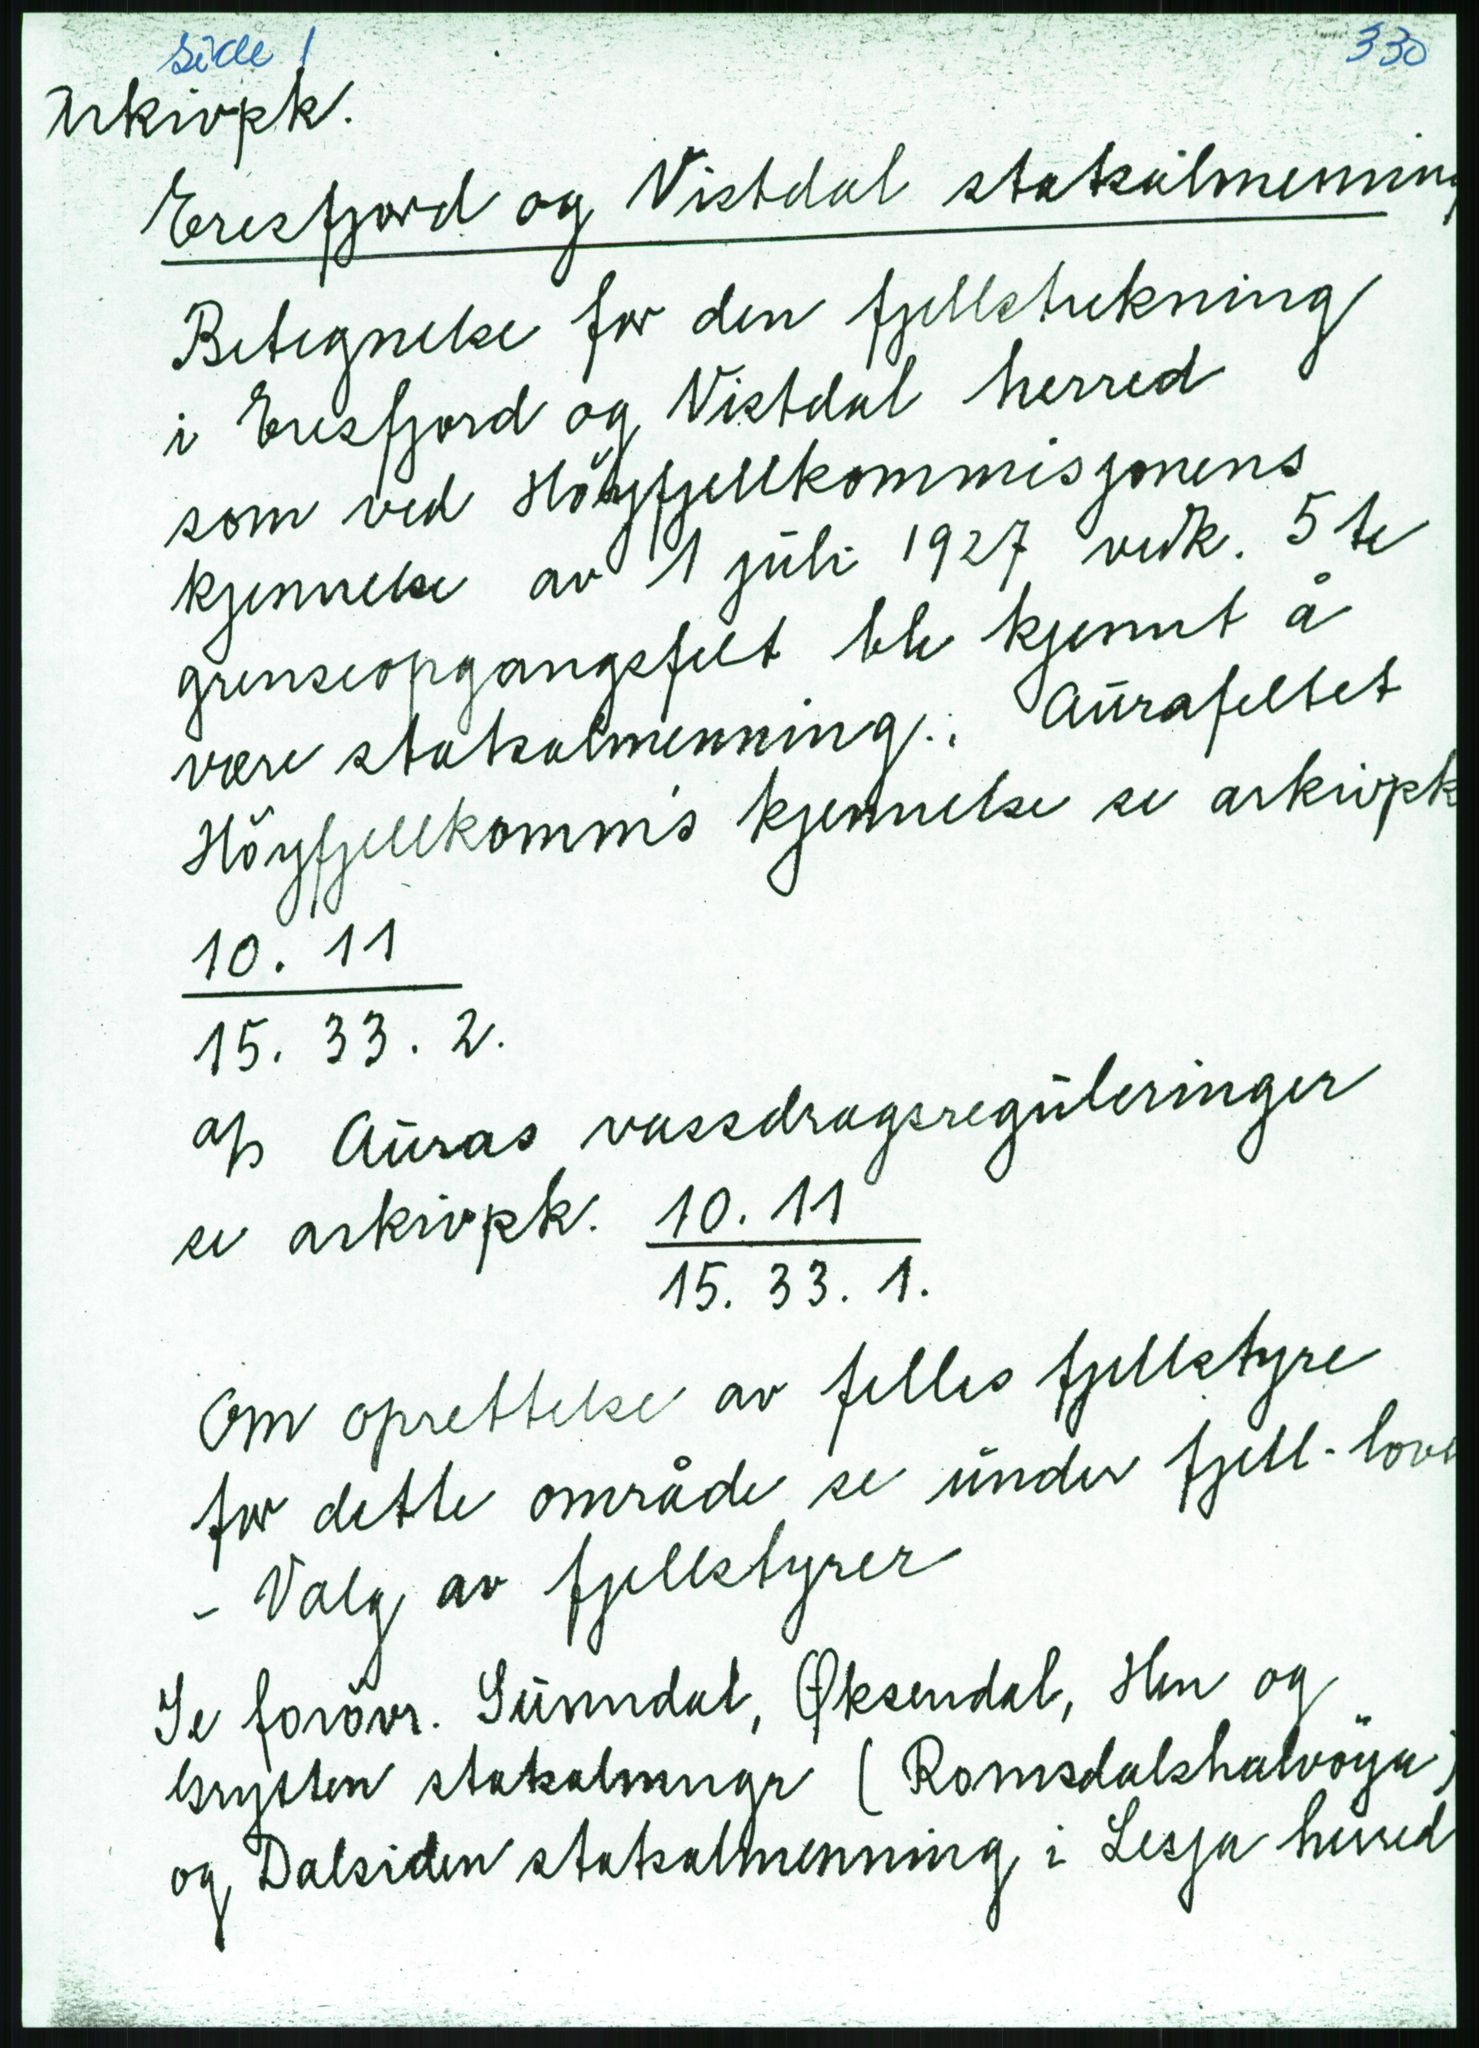 side 1
330
Arkivpk.
Eresfjord og Vistdal statsalmenning
Betegnelse for den fjellstrekning
i Eresfjord og Vistdal herred
som ved Höyfjellkommisjonens
kjennelse av 1 juli 1927 vedk. 5te
grenseopgangsfelt ble kjennt å
være statsalmenning.: Aurafeltet
Höyfjellkomm's kjennelse se arkivpk
10. 11
15. 33. 2.
ap Auras vassdragsreguleringer
se arkivpk. 10. 11
15. 33. 1.
Om oprettelse av felles fjellstyre
for dette område se under fjell-love
- Valg av fjellstyrer
Se forövr. Sunndal, Øksendal, Hen og
Grytten statsalmngr (Romsdalshalvöya)
og Dalsiden statsalmenning i Lesja herred